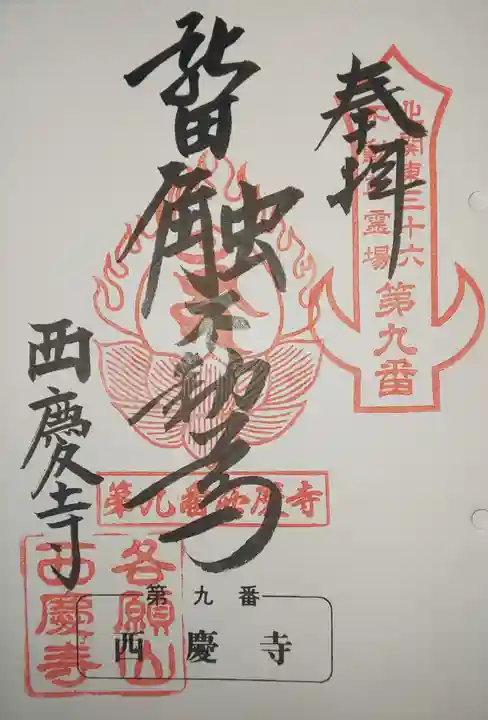 奉拝
北関東三十六
不動尊霊場
第九番
不動尊
西慶寺
第九番西慶寺
各願山
西慶寺
第九番
西慶寺